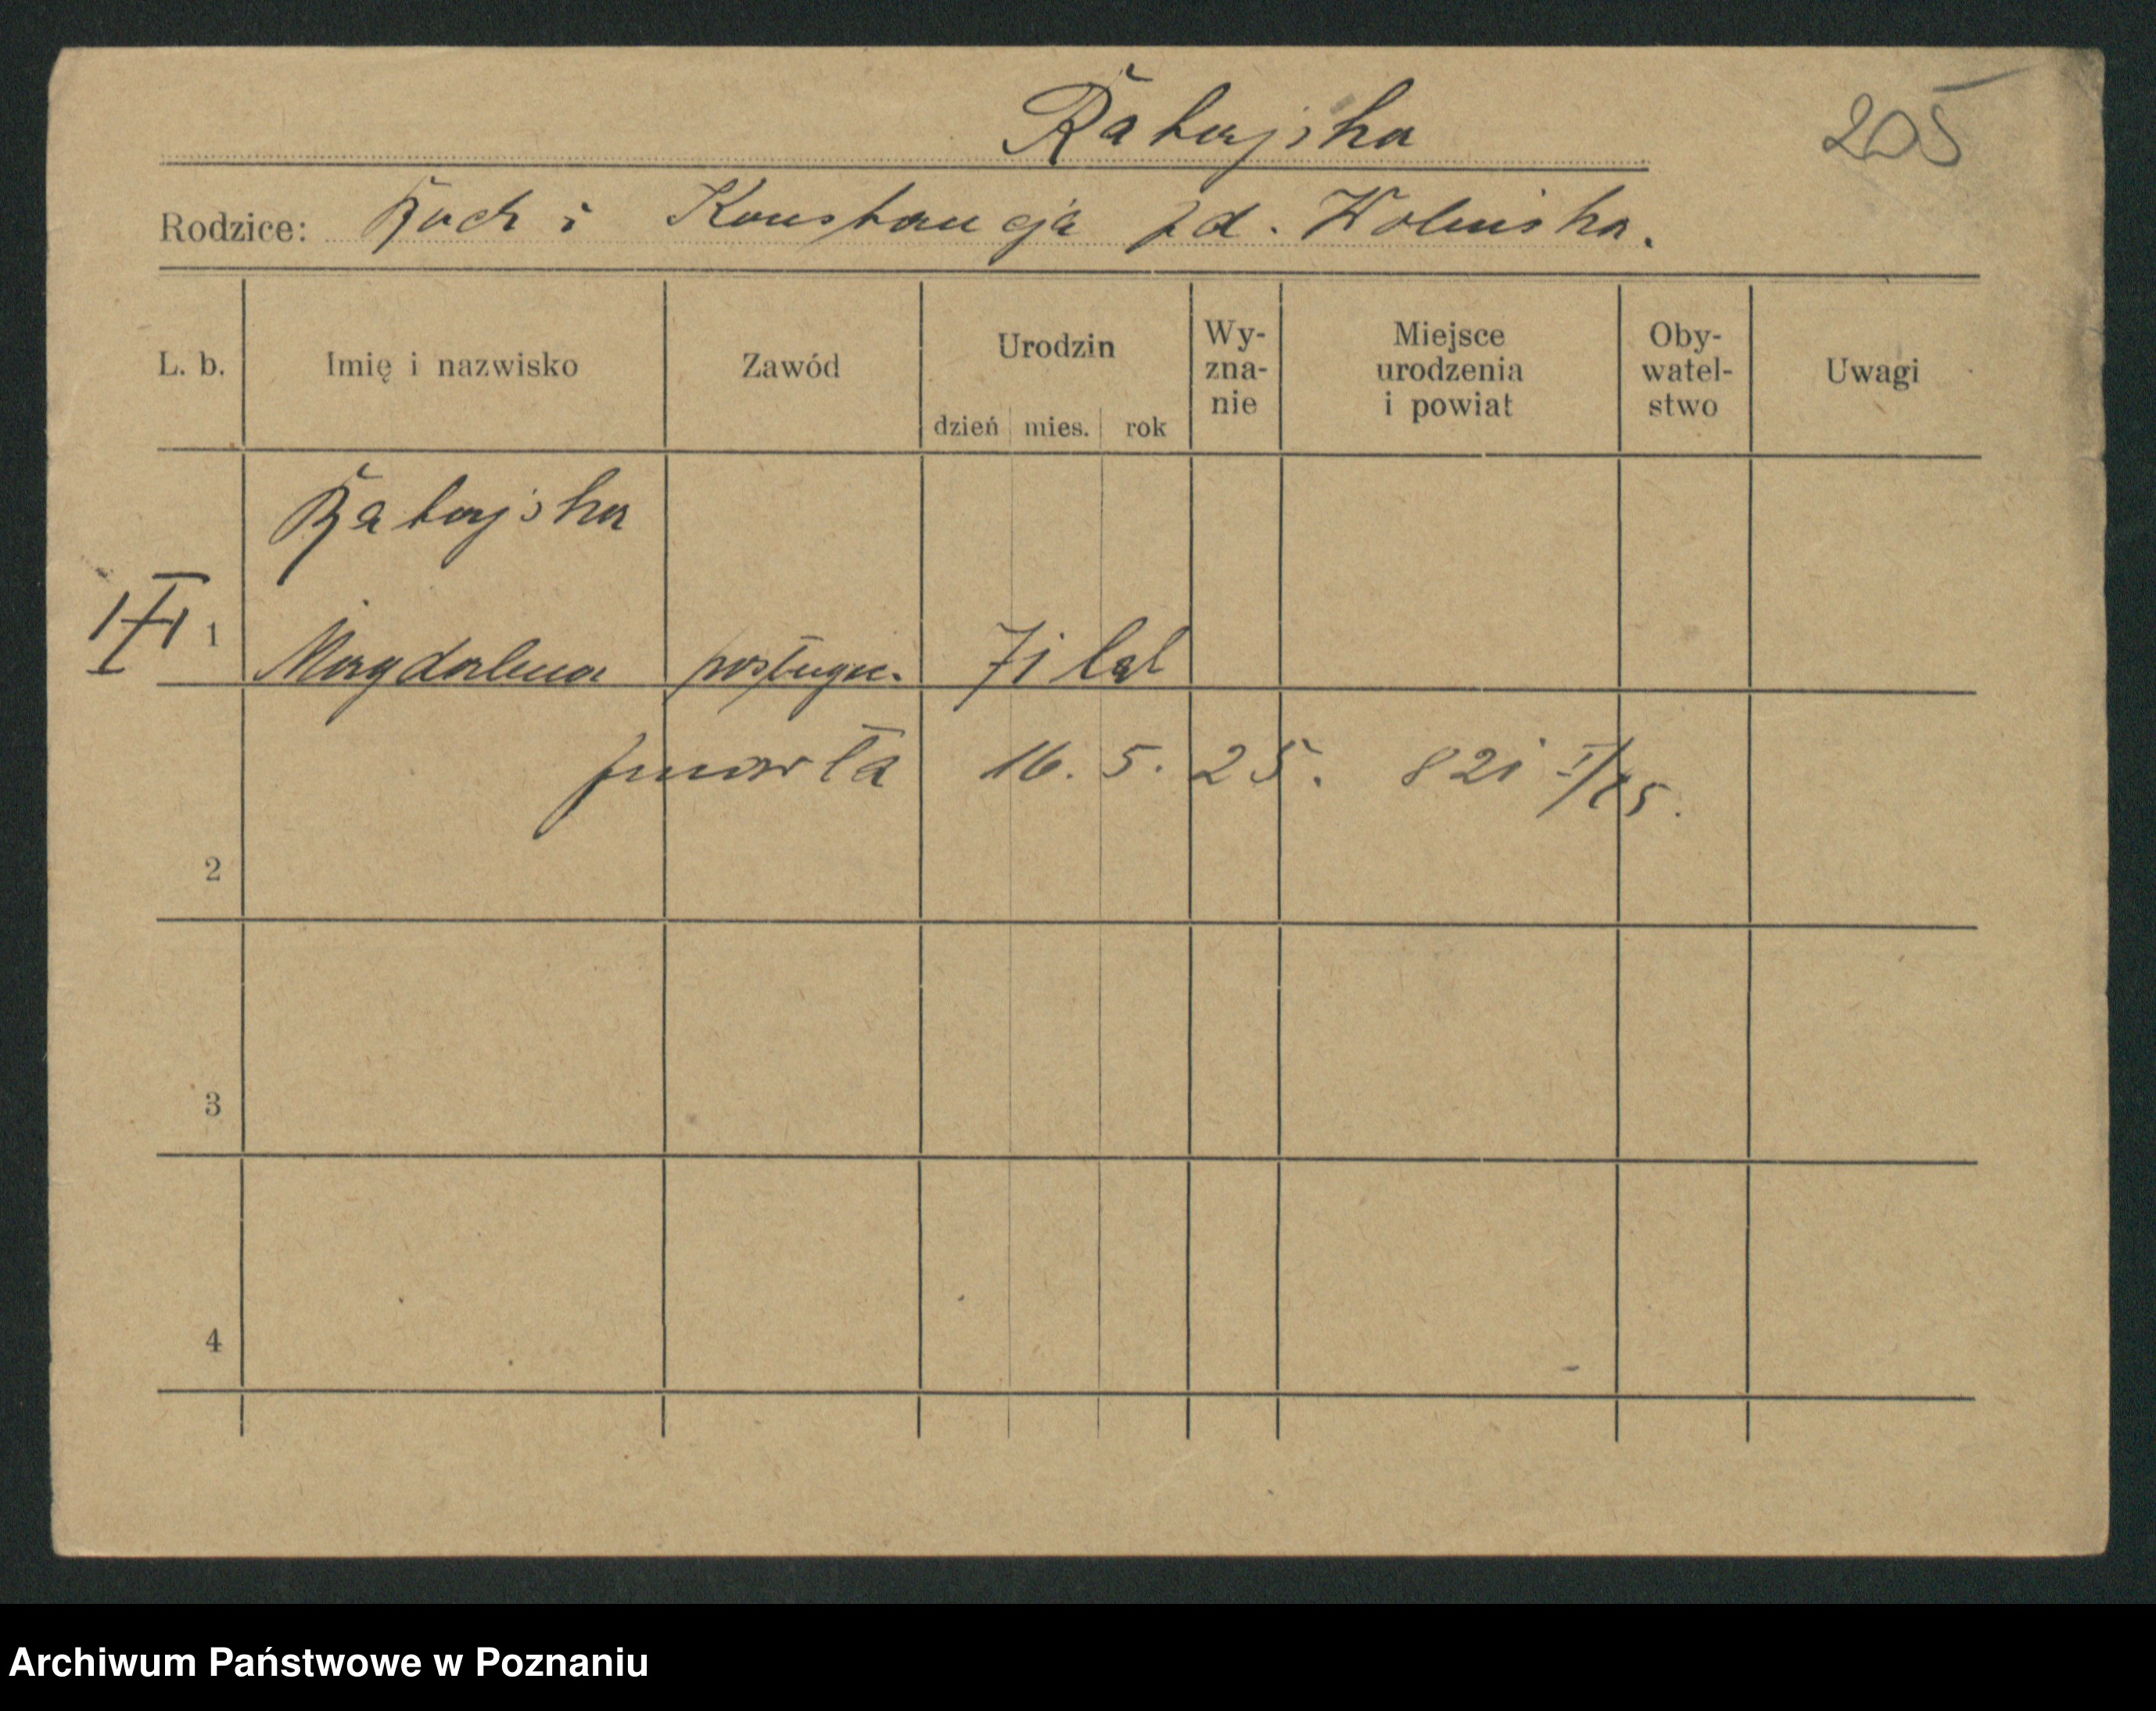 Ratajska
205
Rodzice: Roch i Konstancja zd. Wolniska.
L. b. Imię i nazwisko Zawód Urodzin dzień mies. rok Wy-zna-nie Miejsce urodzenia i powiat Oby-watel-stwo Uwagi
Ratajska
1 Magdalena posługu. 71 lat
zmarła 16. 5. 25. 821 I/25.
2
3
4
Archiwum Państwowe w Poznaniu